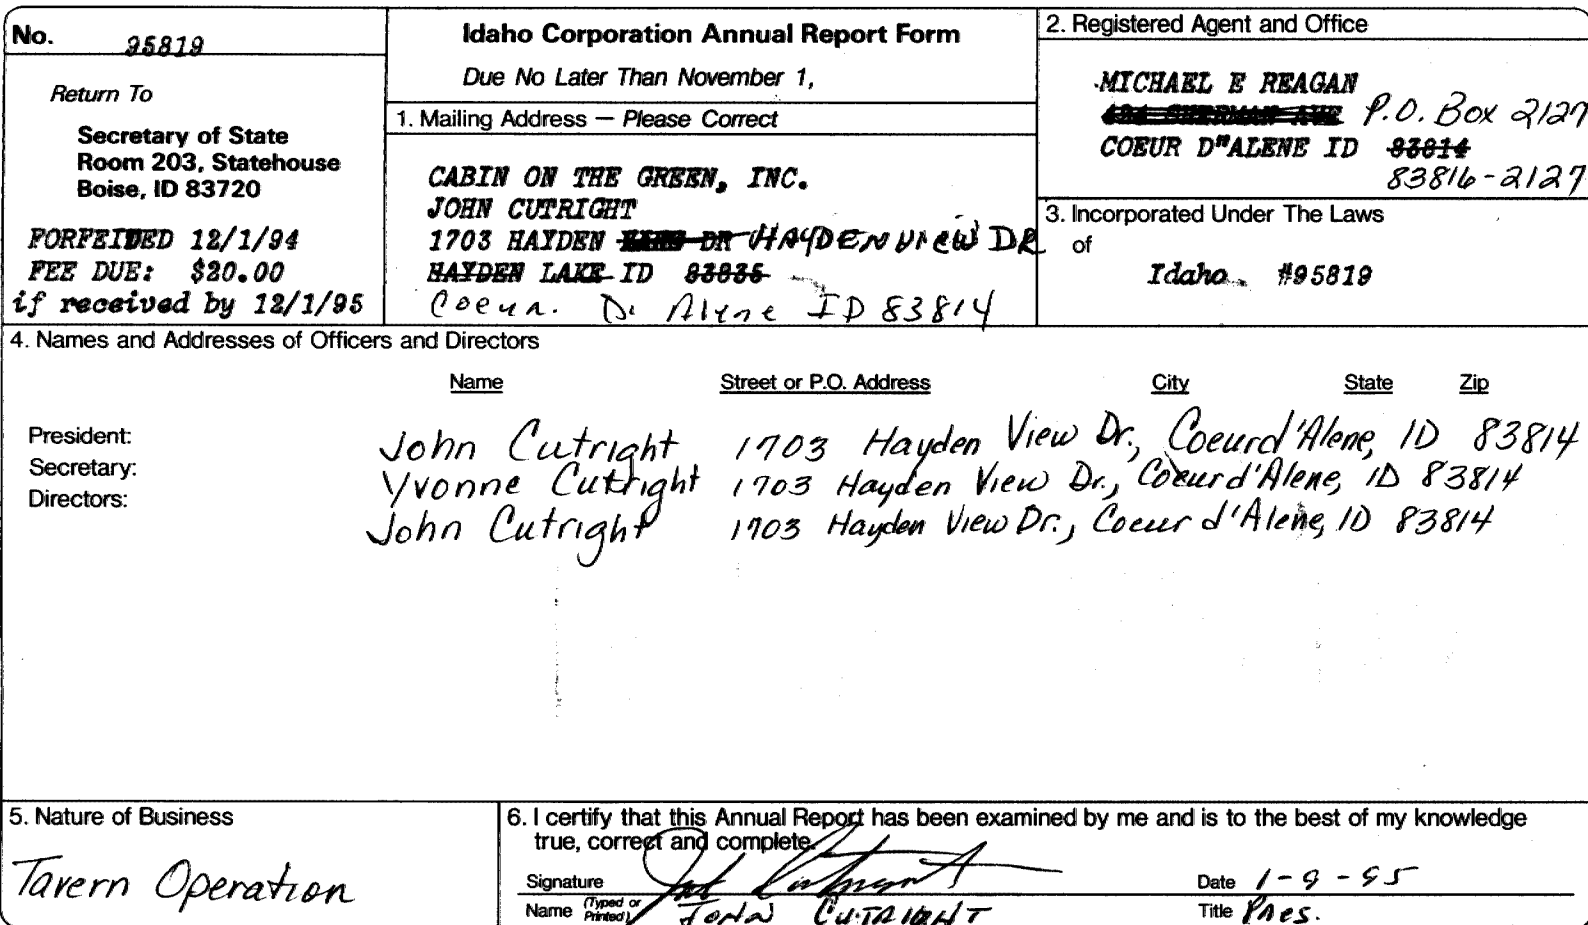 No. 95819
Return To
Secretary of State
Room 203, Statehouse
Boise, ID 83720
FORFEITED 12/1/94
FEE DUE: $20.00
if received by 12/1/95
Idaho Corporation Annual Report Form
Due No Later Than November 1,
1. Mailing Address — Please Correct
CABIN ON THE GREEN, INC.
JOHN CUTRIGHT
1703 HAYDEN DR HAYDEN VIEW DR
HAYDEN LAKE ID 83835
Coeur. D. Alene ID 83814
2. Registered Agent and Office
MICHAEL E REAGAN
SHERMAN AVE P.O. Box 2127
COEUR D"ALENE ID 83814
83816-2127
3. Incorporated Under The Laws
of
Idaho #95819
4. Names and Addresses of Officers and Directors
Name Street or P.O. Address City State Zip
President: John Cutright 1703 Hayden View Dr., Coeur d'Alene, ID 83814
Secretary: Yvonne Cutright 1703 Hayden View Dr., Coeur d'Alene, ID 83814
Directors: John Cutright 1703 Hayden View Dr., Coeur d'Alene, ID 83814
5. Nature of Business
Tavern Operation
6. I certify that this Annual Report has been examined by me and is to the best of my knowledge
true, correct and complete.
Signature John Cutright Date 1-9-95
Name (Typed or Printed) JOHN CUTRIGHT Title Pres.